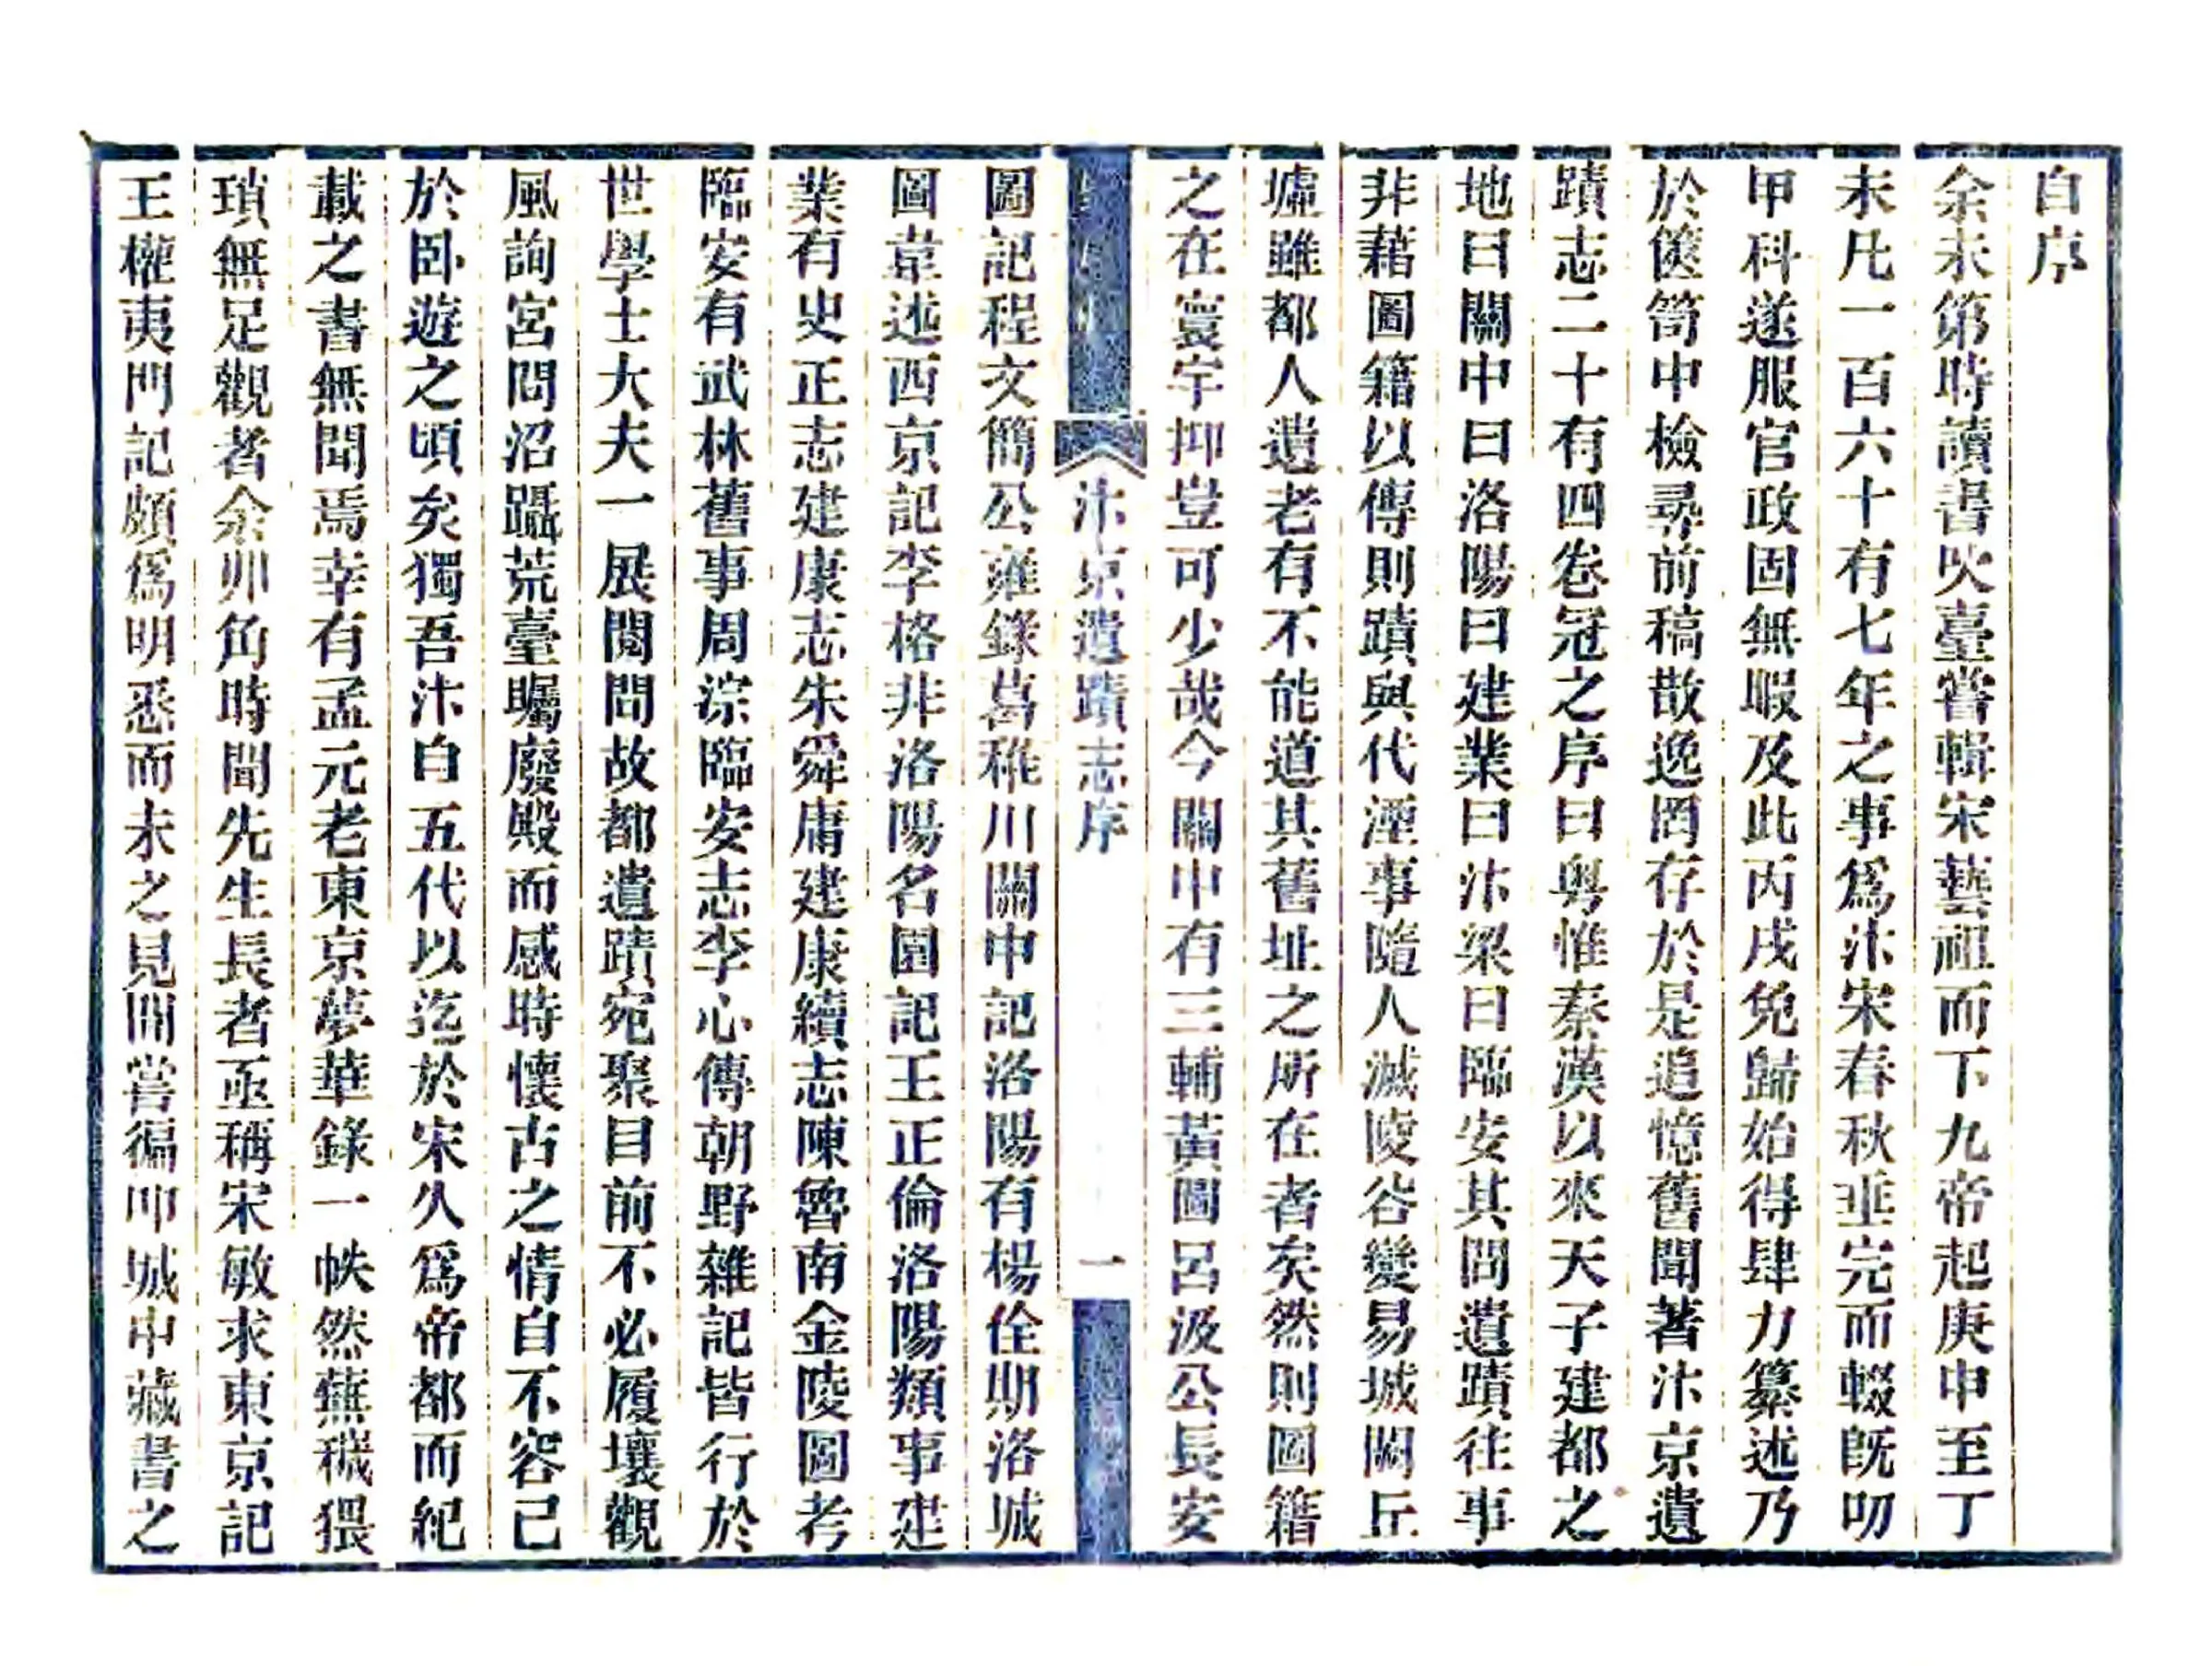 自序
余未第時讀書吹臺嘗輯宋藝祖而下九帝起庚申至丁
未凡一百六十有七年之事爲汴宋春秋垂完而輟旣叨
甲科遂服官政固無暇及此丙戌免歸始得肆力纂述乃
於篋笥中檢尋前稿散逸罔存於是追憶舊聞著汴京遺
蹟志二十有四卷冠之序曰粵惟秦漢以來天子建都之
地曰關中曰洛陽曰建業曰汴梁曰臨安其間遺蹟往事
非藉圖籍以傳則蹟與代湮事隨人滅陵谷變易城闕丘
墟雖都人遺老有不能道其舊址之所在者矣然則圖籍
之在寰宇抑豈可少哉今關中有三輔黃圖呂汲公長安
汴京遺蹟志序
一
圖記程文簡公雍錄葛稚川關中記洛陽有楊佺期洛城
圖韋述西京記李格非洛陽名園記王正倫洛陽類事建
業有史正志建康志朱舜庸建康續志陳魯南金陵圖考
臨安有武林舊事周淙臨安志李心傳朝野雜記皆行於
世學士大夫一展閱問故都遺蹟宛聚目前不必履壤觀
風詢宮問沼躡荒臺矚廢殿而感時懷古之情自不容已
於臥遊之頃矣獨吾汴自五代以迄於宋久爲帝都而紀
載之書無聞焉幸有孟元老東京夢華錄一帙然蕪穢猥
瑣無足觀者余丱角時聞先生長者亟稱宋敏求東京記
王權夷門記頗爲明悉而未之見間嘗徧叩城中藏書之